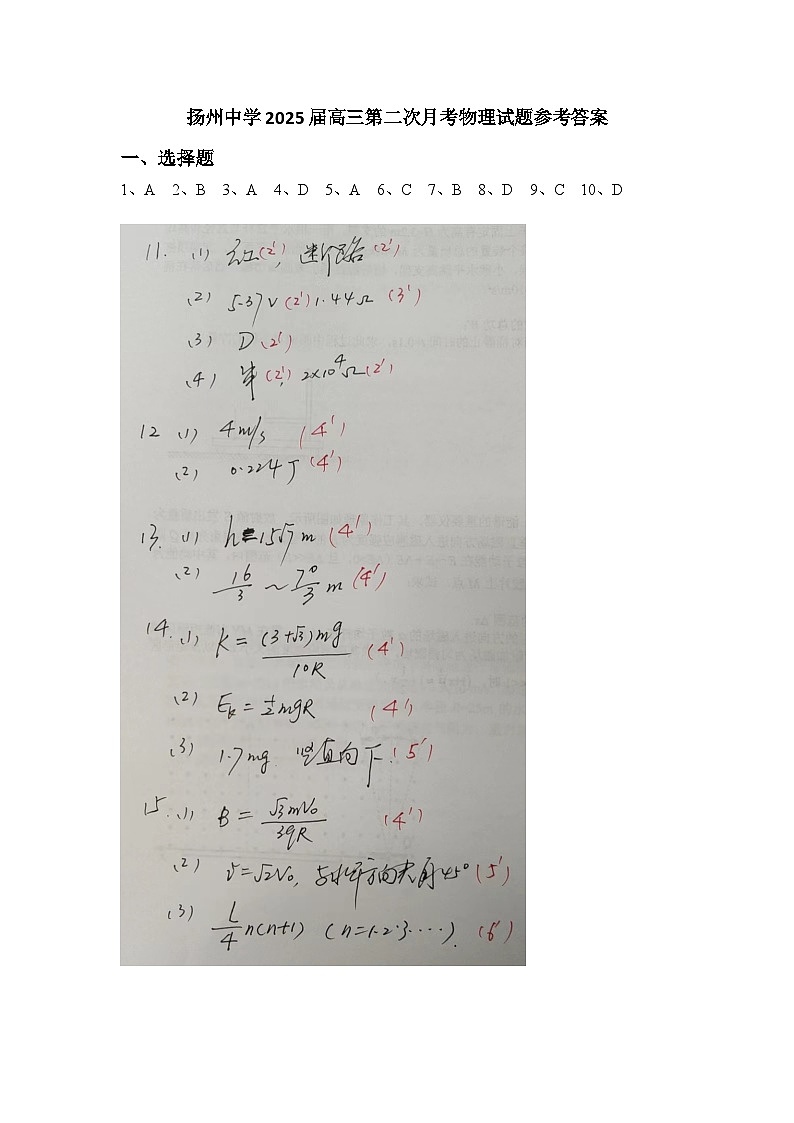 扬州中学 2025 届高三第二次月考物理试题参考答案
一、选择题
1、A 2、B 3、A 4、D 5、A 6、C 7、B 8、D 9、C 10、D
11. (1) 红(2'), 断路(2')
(2) 5.37V (2') 1.44Ω (3')
(3) D (2')
(4) (2'), 2×10⁴Ω (2')
12 (1) 4m/s (4')
(2) 0.224J (4')
13. (1) h=15√7 m (4')
(2) 16/3 ~ 70/3 m (4')
14. (1) K = (3+√3)mg/10R (4')
(2) Ek = 1/2 mgR (4')
(3) 1.7mg 竖直向下 (5')
15. (1) B = √3mV₀/3qR (4')
(2) v=√2V₀, 与水平方向夹角45° (5')
(3) L/4 n(n+1) (n=1.2.3.····). (6')